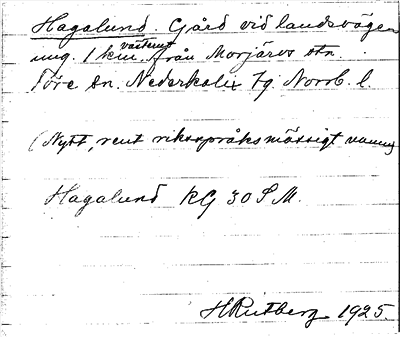 Hagalund. Gård vid landsvägen
ung. 1 km. västerut från Morjärvs stn.
Töre sn. Nederkalix tg. Norrb. l.
(Nytt, rent riksspråksmässigt namn)
Hagalund KG 30 S M.
H Rutberg 1925